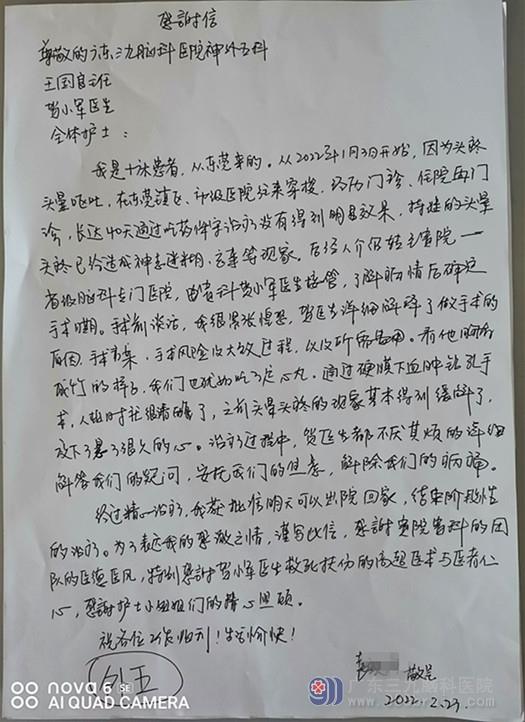 感謝信
尊敬的广东三九脑科医院神外五科
王国良主任
贺小军医生
全体护士：
我是十床患者，从东莞来的。从2022年1月3日开始，因为头疼
头晕呕吐，在东莞镇区、市级医院往来穿梭，经历门诊、住院再门
诊，长达40天通过吃药保守治疗没有得到明显效果，持续的头晕
头疼已给造成神志迷糊，等现象。后经人介绍转主贵院一
省级脑科专门医院，由贵科贺小军医生接管，了解病情后确定
手术日期。手术前谈话，我很紧张惧恐，贺医生详细解释了做手术的
原因，手术方案，手术风险及大致过程，以及所需费用。看他胸有
成竹的样子，我们也犹如吃了定心丸。通过硬膜下血肿钻孔手
术，人短时就清醒了，之前头晕头疼的现象基本得到缓解了，
放下了悬了很久的心。治疗过程中，贺医生都不厌其烦的详细
解答我们的疑问，安抚我们的焦急，解除我们的病痛。
经过精心治疗，我获批准明天可以出院回家，结束阶段性
的治疗。为了表达我的感激之情，谨写此信，感謝贵院贵科的团
队的医德医风，特别感謝贺小军医生救死扶伤的高超医术与医者仁
心，感謝护士小姐姐们的精心照顾。
祝各位工作顺利！生活愉快！
敬呈
外五
2022.2.23.
nova 6 SE
AI QUAD CAMERA
广东三九脑科医院